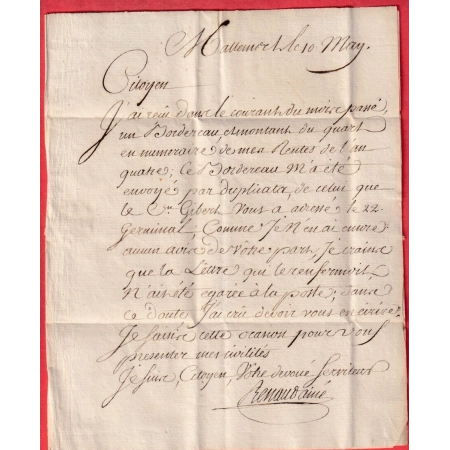 Mallemort le 10 May.
Citoyen
J'ai reçu dans le courant du mois passé,
un Bordereau du montant du quart
en numeraire de mes Rentes de l'an
quatre; le Bordereau m'a été
envoyé par duplicata, de celui que
le Cen Gibert vous a adressé le 22
Germinal, Comme Je N'en ai encore
aucun avis de Votre part, Je crains
que la Lettre qui le renfermoit,
N'ait été egarée à la poste; dans
ce doute J'ai cru devoir vous en écrire.
Je saisis cette occasion pour vous
presenter mes civilités
Je suis, Citoyen, Votre devoué serviteur
Renaud ainé